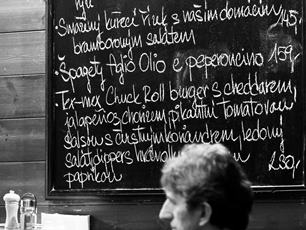 rýží
- Smažený kuřecí řízek s naším domácím 145,-
bramborovým salátem
- Špagety Aglio Olio e peperoncino 159,-
- Tex-mex Chuck Roll burger s cheddarem,
jalapeños, chorizem, pikantní tomatovou
salsou s čerstvým koriandrem, ledový
salát, s hranolky
paprikou 230,-